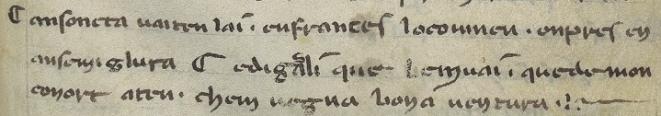 Cansoneta uaiten lai · enfrances locouinen · onpres en
ansemiglura C edigali que bemuai · quedemon
conort aten · chem uegna bona uentura ·